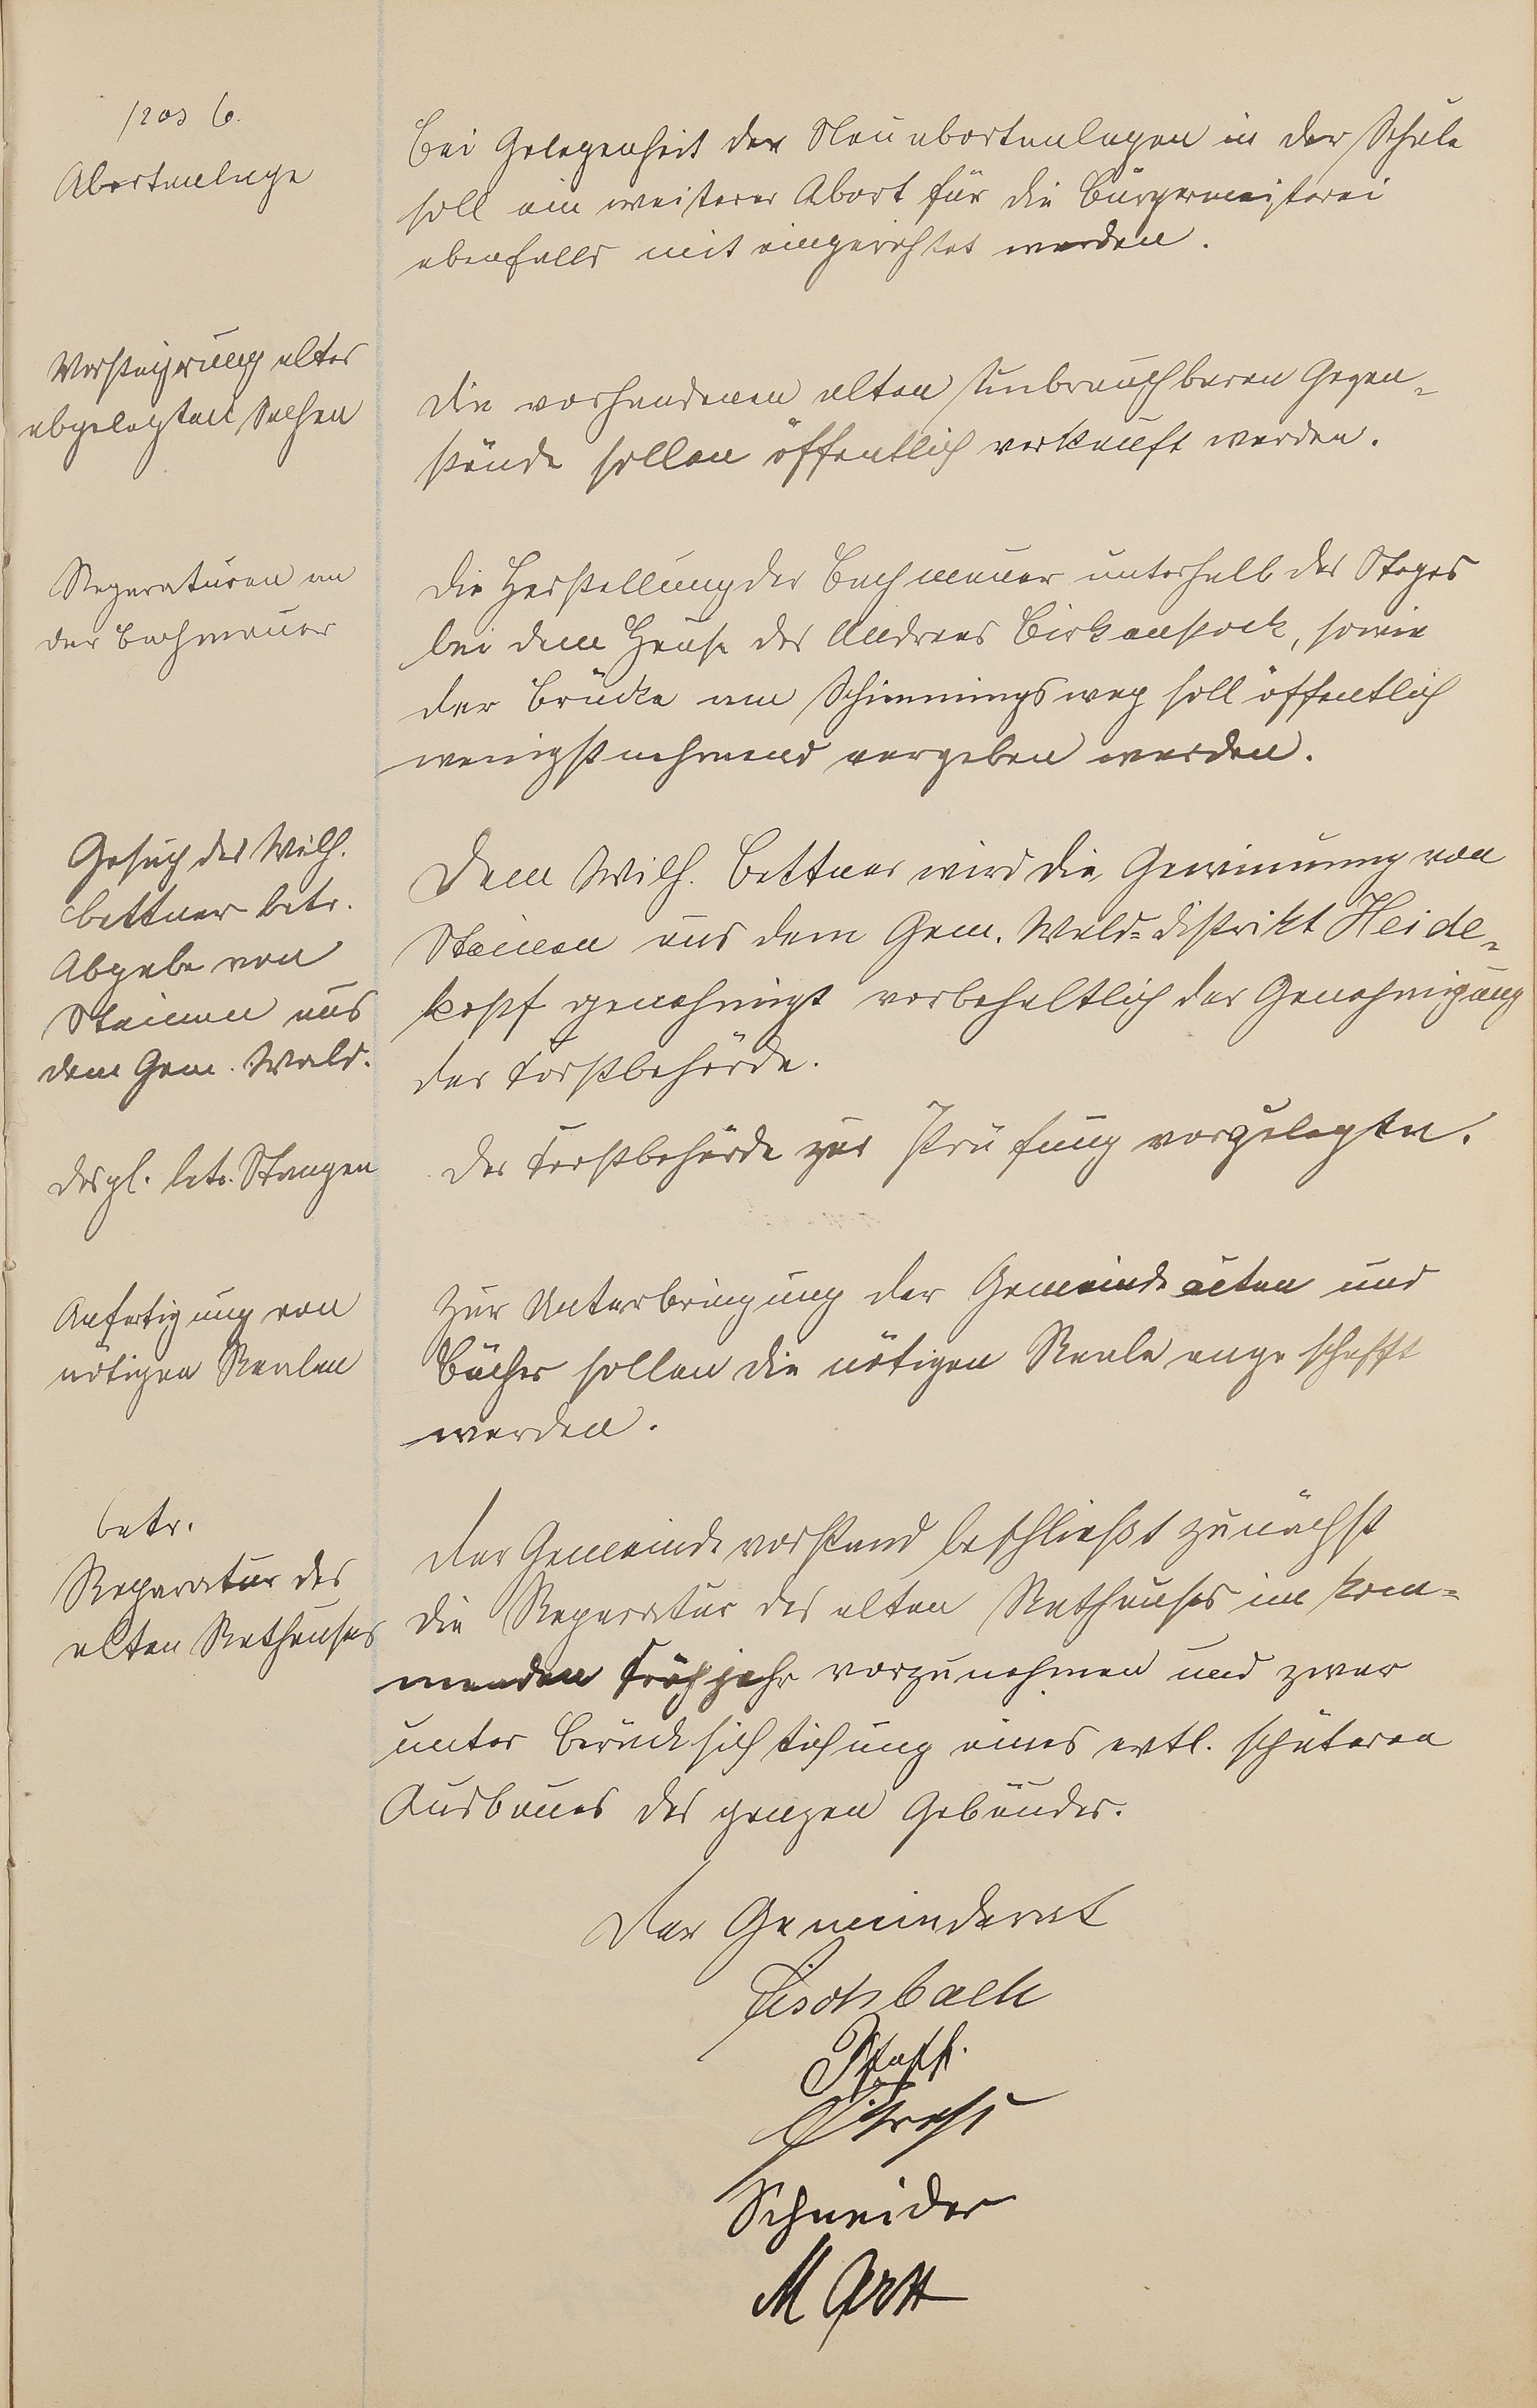 pos 6.
Abortanlage
Bei Gelegenheit der Neuabortanlagen in der Schule
soll ein weiterer Abort für die Bürgermeisterei
ebenfalls mit eingerichtet werden.
Versteigerung alter
abgelegten Sachen
Die vorhandenen alten unbrauchbaren Gegen-
stände sollen öffentlich verkauft werden.
Reparaturen an
der Bachmauer
Die Herstellung der Bachmauer unterhalb des Steges
bei dem Hause des Andreas Birkenstock, sowie
der Brücke am Schimmingsweg soll öffentlich
wenigstnehmend vergeben werden.
Gesuch des Wilh.
Bettner betr.
Abgabe von
Steinen aus
dem Gem. Wald.
Dem Wilh. Bettner wird die Gewinnung von
Steinen aus dem Gem. Wald-distrikt Heide-
kopf genehmigt vorbehaltlich der Genehmigung
der Forstbehörde.
desgl. betr. Stangen
Der Forstbehörde zur Prüfung vorzulegen.
Anfertigung von
nötigen Realen
Zur Unterbringung der Gemeindeakten und
Bücher sollen die nötigen Reale angeschafft
werden.
betr.
Reparatur des
alten Rathauses
Der Gemeindevorstand beschließt zunächst
die Reparatur des alten Rathauses im kom-
menden Frühjahr vorzunehmen und zwar
unter Berücksichtigung eines evtl. späteren
Ausbaues des ganzen Gebäudes.
Der Gemeinderat
Fischbach
Pfaff.
Schneider